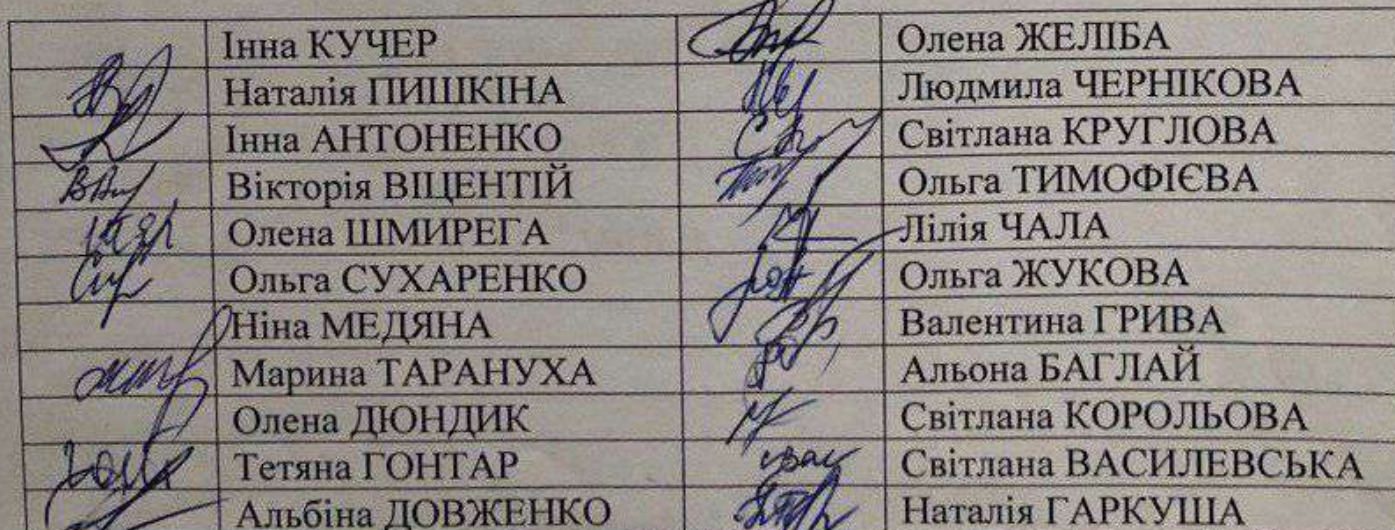 Інна КУЧЕР Олена ЖЕЛІБА
Наталія ПИШКІНА Людмила ЧЕРНІКОВА
Інна АНТОНЕНКО Світлана КРУГЛОВА
Вікторія ВІЦЕНТІЙ Ольга ТИМОФІЄВА
Олена ШМИРЕГА Лілія ЧАЛА
Ольга СУХАРЕНКО Ольга ЖУКОВА
Ніна МЕДЯНА Валентина ГРИВА
Марина ТАРАНУХА Альона БАГЛАЙ
Олена ДЮНДИК Світлана КОРОЛЬОВА
Тетяна ГОНТАР Світлана ВАСИЛЕВСЬКА
Альбіна ДОВЖЕНКО Наталія ГАРКУША